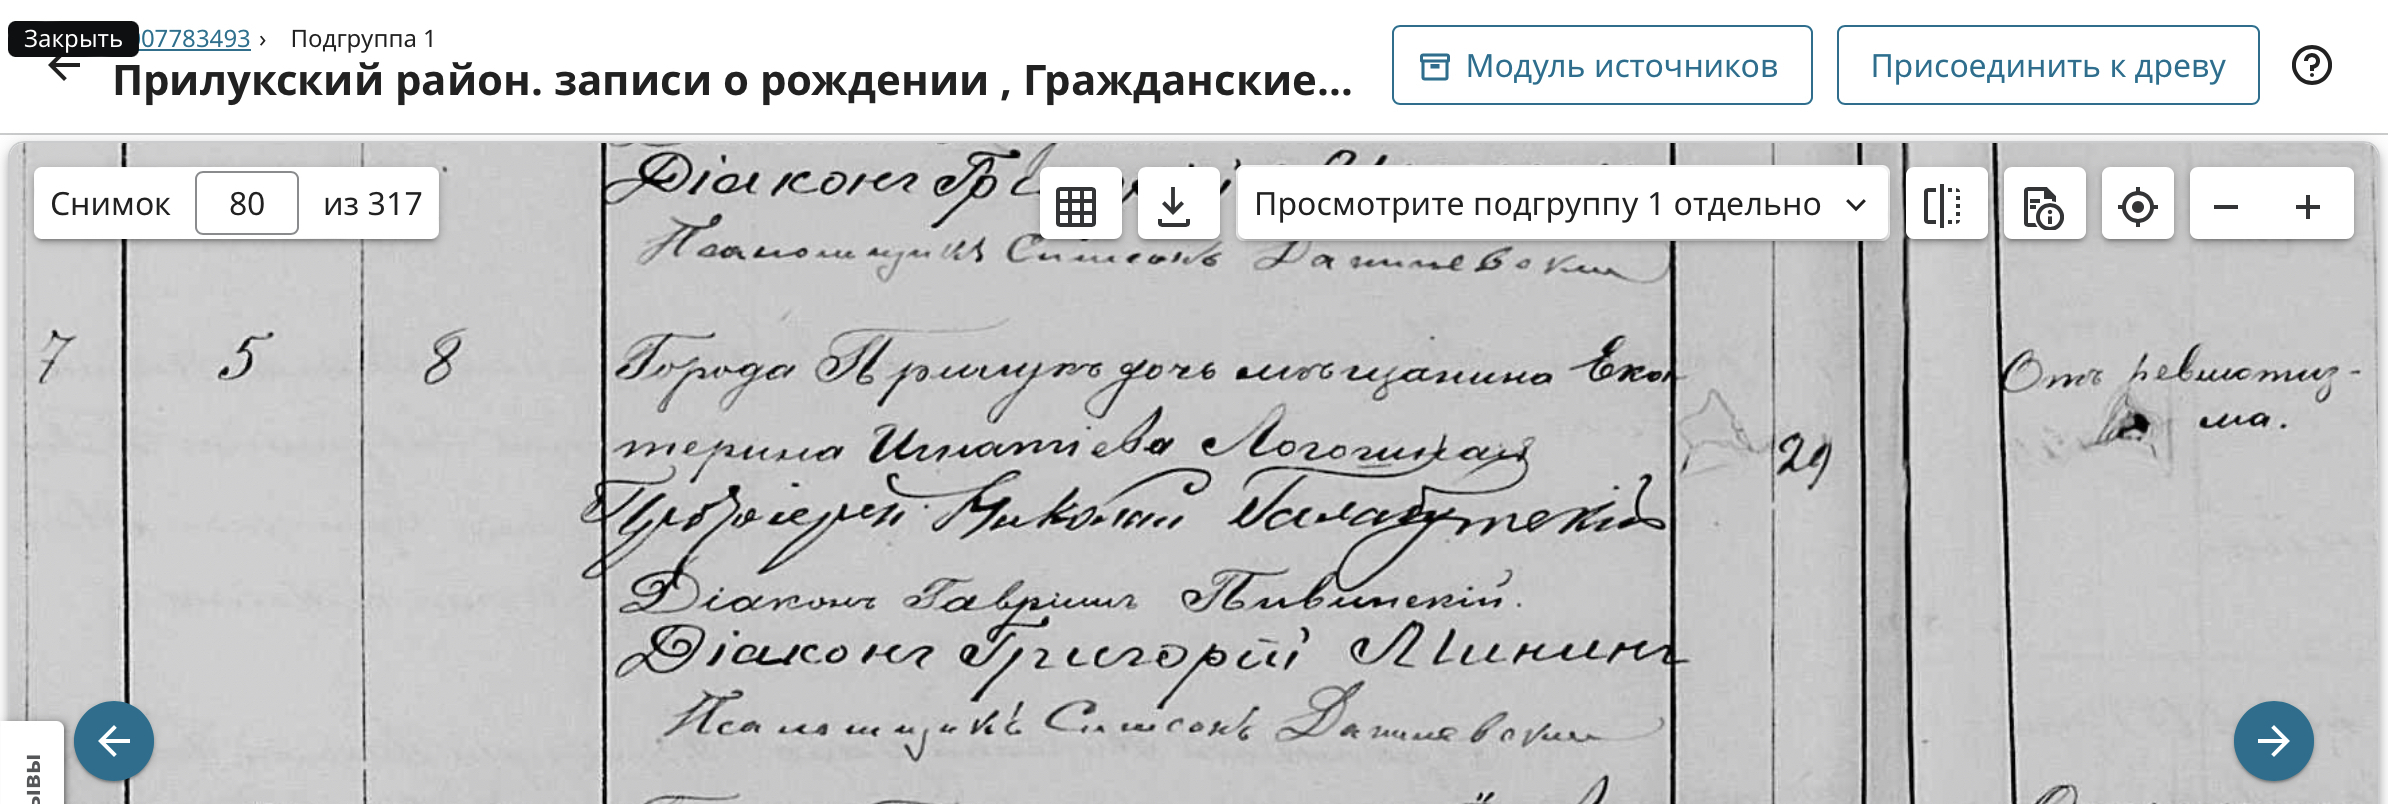 Закрыть 07783493 › Подгруппа 1
Прилукский район. записи о рождении , Гражданские...
Модуль источников
Присоединить к древу
Снимок 80 из 317
Просмотрите подгруппу 1 отдельно
Діаконъ
Псаломщикъ Симеонъ Данилевский
7 5 8
Города Прилукъ дочь мѣщанина Ека-
терина Игнатіева
29
Отъ ревматиз-
ма.
Протоіерей Николай
Діаконъ Гавріилъ Пивинскій.
Діаконъ Григорій Мининъ
Псаломщикъ Симеонъ Данилевский
ывы